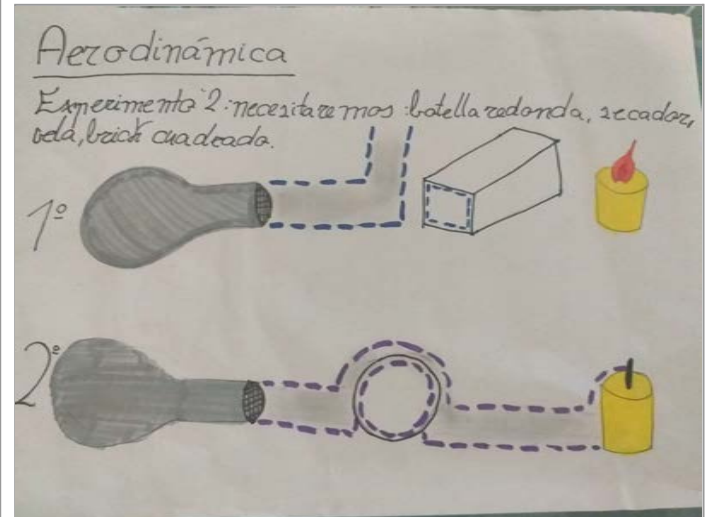 Aerodinámica
Experimento 2: necesitaremos: botella redonda, secador,
vela, brick cuadrado.
1º
2º